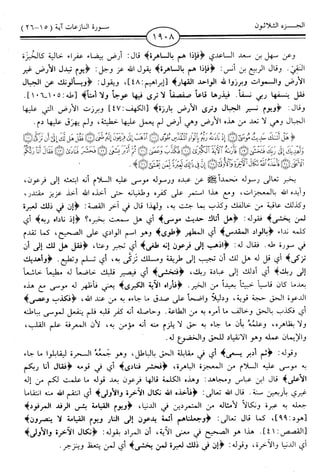 الجـــزء الثلاثـون
١٩٠٨
سورة النازعات آية (١٥-٢٦)
وعن سهل بن سعد الساعدي ﴿فإذا هم بالساهرة﴾ قال: أرض بيضاء عفراء خالية كالخبزة
النقي. وقال الربيع بن أنس: ﴿فإذا هم بالساهرة﴾ يقول الله عز وجل: ﴿يوم تبدل الأرض غير
الأرض والسموات وبرزوا لله الواحد القهار﴾ [إبراهيم: ٤٨]، ويقول: ﴿ويسألونك عن الجبال
فقل ينسفها ربي نسفاً. فيذرها قاعاً صفصفاً لا ترى فيها عوجاً ولا أمتاً﴾ [طه: ١٠٥ـ١٠٦].
وقال: ﴿ويوم نسير الجبال وترى الأرض بارزة﴾ [الكهف: ٤٧] وبرزت الأرض التي عليها
الجبال وهي لا تعد من هذه الأرض وهي أرض لم يعمل عليها خطيئة، ولم يهرق عليها دم.
يخبر تعالى رسوله محمداً ﷺ عن عبده ورسوله موسى عليه السلام أنه ابتعثه إلى فرعون،
وأيده الله بالمعجزات، ومع هذا استمر على كفره وطغيانه حتى أخذه الله أخذ عزيز مقتدر،
وكذلك عاقبة من خالفك وكذب بما جئت به، ولهذا قال في آخر القصة: ﴿إن في ذلك لعبرة
لمن يخشى﴾ فقوله: ﴿هل أتاك حديث موسى﴾ أي هل سمعت بخبره؟ ﴿إذ ناداه ربه﴾ أي
كلمه نداء ﴿بالواد المقدس﴾ أي المطهر ﴿طوى﴾ وهو اسم الوادي على الصحيح، كما تقدم
في سورة طه. فقال له: ﴿اذهب إلى فرعون إنه طغى﴾ أي تجبر وعتا، ﴿فقل هل لك إلى أن
تزكى﴾ أي قل له هل لك أن تجيب إلى طريقة ومسلك تزكى به، أي تسلم وتطيع. ﴿وأهديك
إلى ربك﴾ أي أدلك إلى عبادة ربك، ﴿فتخشى﴾ أي فيصير قلبك خاضعاً له مطيعاً خاشعاً
بعدما كان قاسياً خبيثاً بعيداً من الخير. ﴿فأراه الآية الكبرى﴾ يعني فأظهر له موسى مع هذه
الدعوة الحق حجة قوية، ودليلاً واضحاً على صدق ما جاءه به من عند الله، ﴿فكذب وعصى﴾
أي فكذب بالحق وخالف ما أمره به من الطاعة. وحاصله أنه كفر قلبه فلم ينفعل لموسى بباطنه
ولا بظاهره، وعلمه بأن ما جاء به حق لا يلزم منه أنه مؤمن به، لأن المعرفة علم القلب،
والإيمان عمله وهو الانقياد للحق والخضوع له.
وقوله: ﴿ثم أدبر يسعى﴾ أي في مقابلة الحق بالباطل، وهو جمعه السحرة ليقابلوا ما جاء
به موسى عليه السلام من المعجزة الباهرة، ﴿فحشر فنادى﴾ أي في قومه ﴿فقال أنا ربكم
الأعلى﴾ قال ابن عباس ومجاهد: وهذه الكلمة قالها فرعون بعد قوله ما علمت لكم من إله
غيري بأربعين سنة. قال الله تعالى: ﴿فأخذه الله نكال الآخرة والأولى﴾ أي انتقم الله منه انتقاماً
جعله به عبرة ونكالاً لأمثاله من المتمردين في الدنيا، ﴿ويوم القيامة بئس الرفد المرفود﴾
[هود: ٩٩]، كما قال تعالى: ﴿وجعلناهم أئمة يدعون إلى النار ويوم القيامة لا ينصرون﴾
[القصص: ٤١]. هذا هو الصحيح في معنى الآية، أن المراد بقوله: ﴿نكال الآخرة والأولى﴾
أي الدنيا والآخرة، وقوله: ﴿إن في ذلك لعبرة لمن يخشى﴾ أي لمن يتعظ وينزجر.